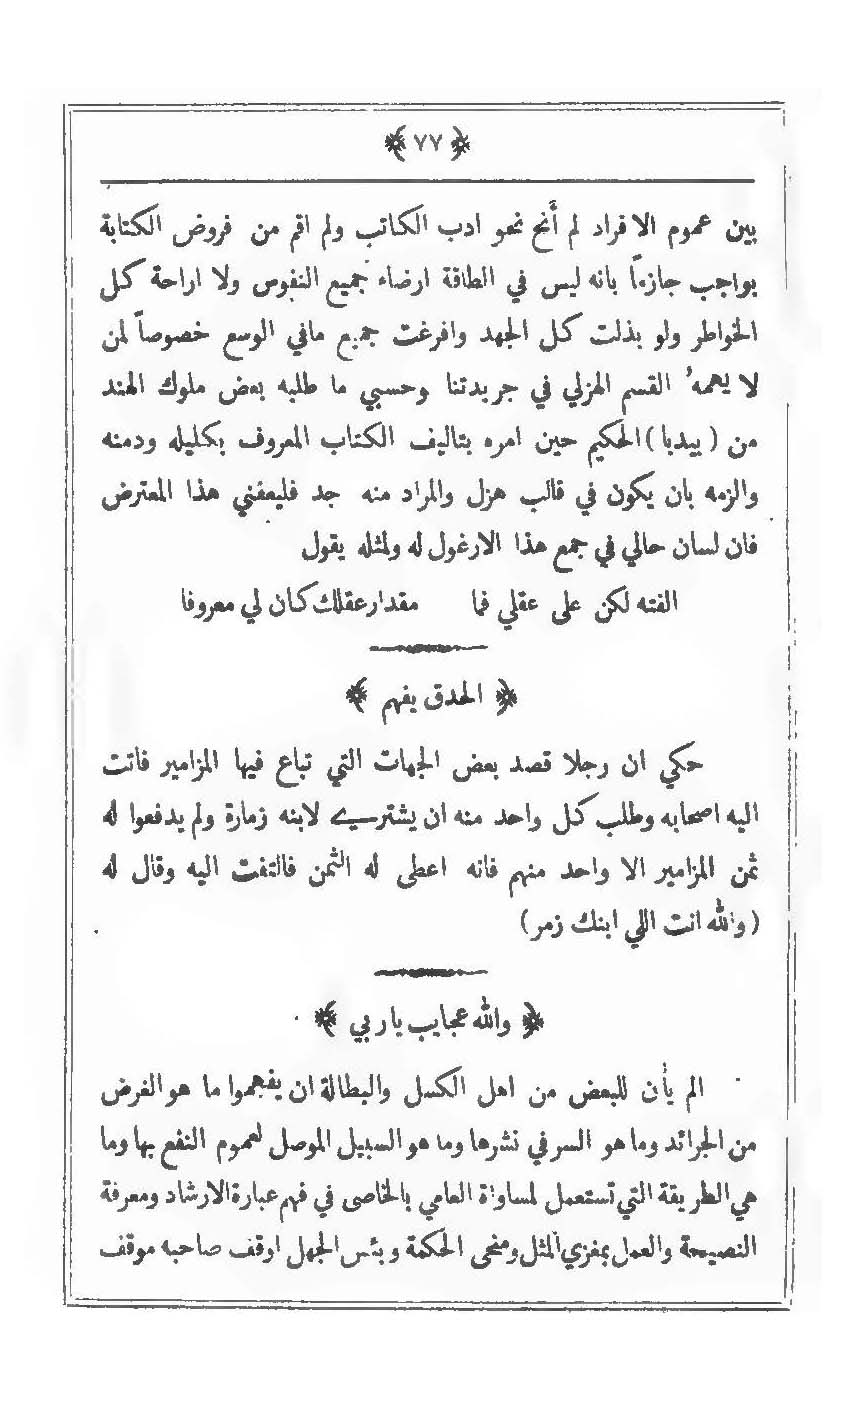 ﴿ ٧٧ ﴾
بين عموم الافراد لم أنح نحو ادب الكاتب ولم اقم من فروض الكتابة
بواجب جازءاً بانه ليس في الطاقة ارضاء جميع النفوس ولا اراحة كل
الخواطر ولو بذلت كل الجهد وافرغت جميع مافي الوسع خصوصاً لمن
لا يهمه القسم الهزلي في جريدتنا وحسبي ما طلبه بعض ملوك الهند
من (بيدبا) الحكيم حين امره بتاليف الكتاب المعروف بكليله ودمنه
والزمه بان يكون في قالب هزل والمراد منه جد فليعفني هذا المعترض
فان لسان حالي في جمع هذا الارغول له ولمثله يقول
الفته لكن على عقلي فما مقدار عقلك كان لي معروفا
﴿ الحدق يفهم ﴾
حكي ان رجلا قصد بعض الجهات التي تباع فيها المزامير فاتت
اليه اصحابه وطلب كل واحد منه ان يشتري لابنه زمارة ولم يدفعوا له
ثمن المزامير الا واحد منهم فانه اعطى له الثمن فالتفت اليه وقال له
(والله انت اللي ابنك زمر)
﴿ والله عجايب يا ربي ﴾
الم يأن للبعض من اهل الكسل والبطالة ان يفهموا ما هو الغرض
من الجرائد وما هو السر في نشرها وما هو السبيل الموصل لعموم النفع بها وما
هي الطريقة التي تستعمل لمساواة العامي بالخاصي في فهم عبارة الارشاد ومعرفة
النصيحة والعمل بمغزي المثل ومنحى الحكمة وبئس الجهل اوقف صاحبه موقف